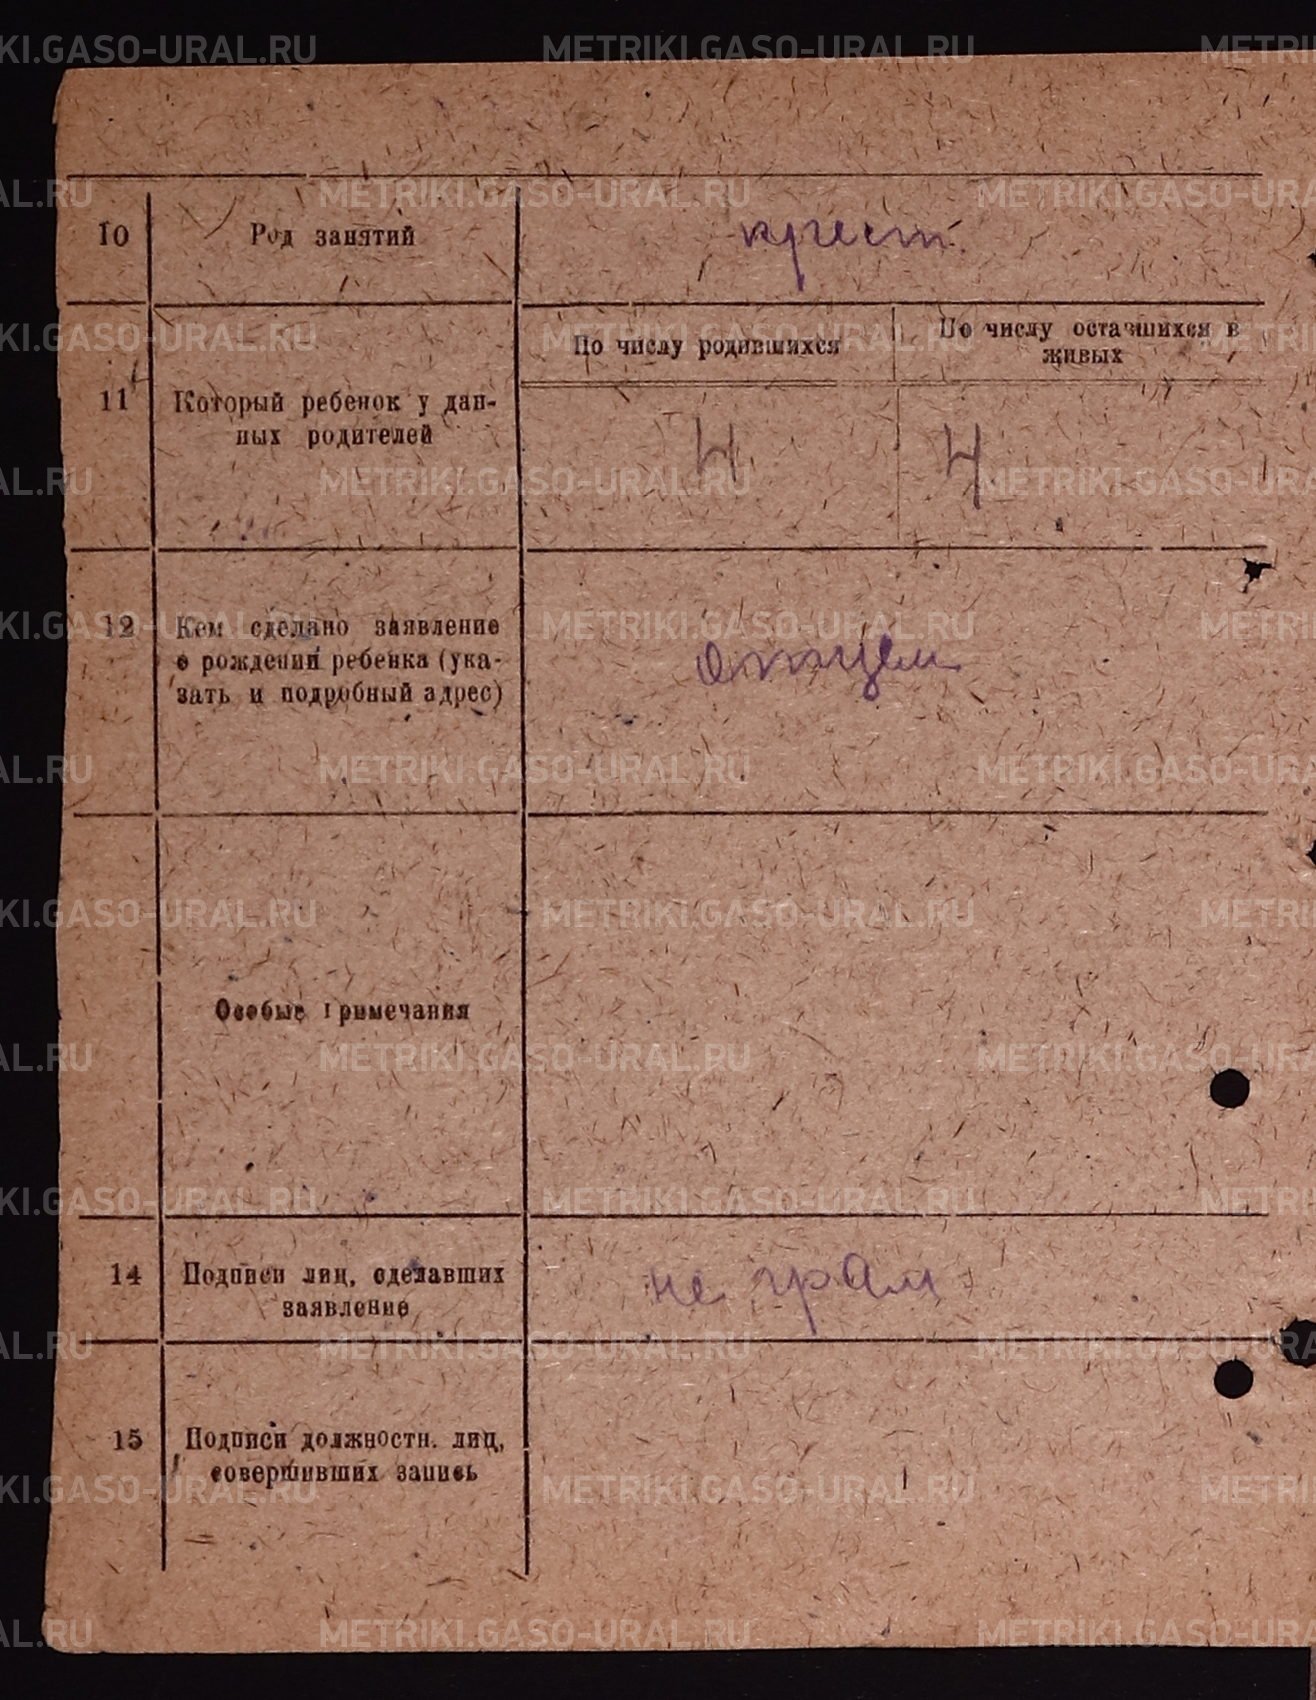 10
Род занятий
крест.
11
Который ребенок у дан-
ных родителей
По числу родившихся
По числу оставшихся в
живых
4
4
12
Кем сделано заявление
о рождении ребенка (ука-
зать и подробный адрес)
отцем
Особые примечания
14
Подписи лиц, сделавших
заявление
не грам
15
Подписи должностн. лиц,
совершивших запись
METRIKI.GASO-URAL.RU